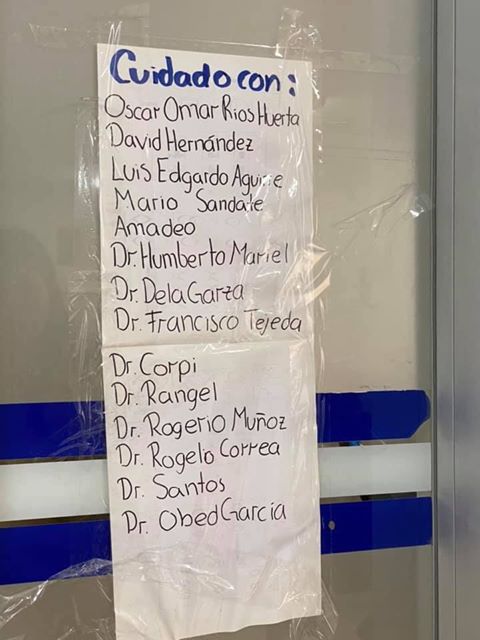 Cuidado con:
Oscar Omar Rios Huerta
David Hernández
Luis Edgardo Aguirre
Mario Sandate
Amadeo
Dr. Humberto Mariel
Dr. De la Garza
Dr. Francisco Tejeda
Dr. Corpi
Dr. Rangel
Dr. Rogerio Muñoz
Dr. Rogelio Correa
Dr. Santos
Dr. Obed Garcia